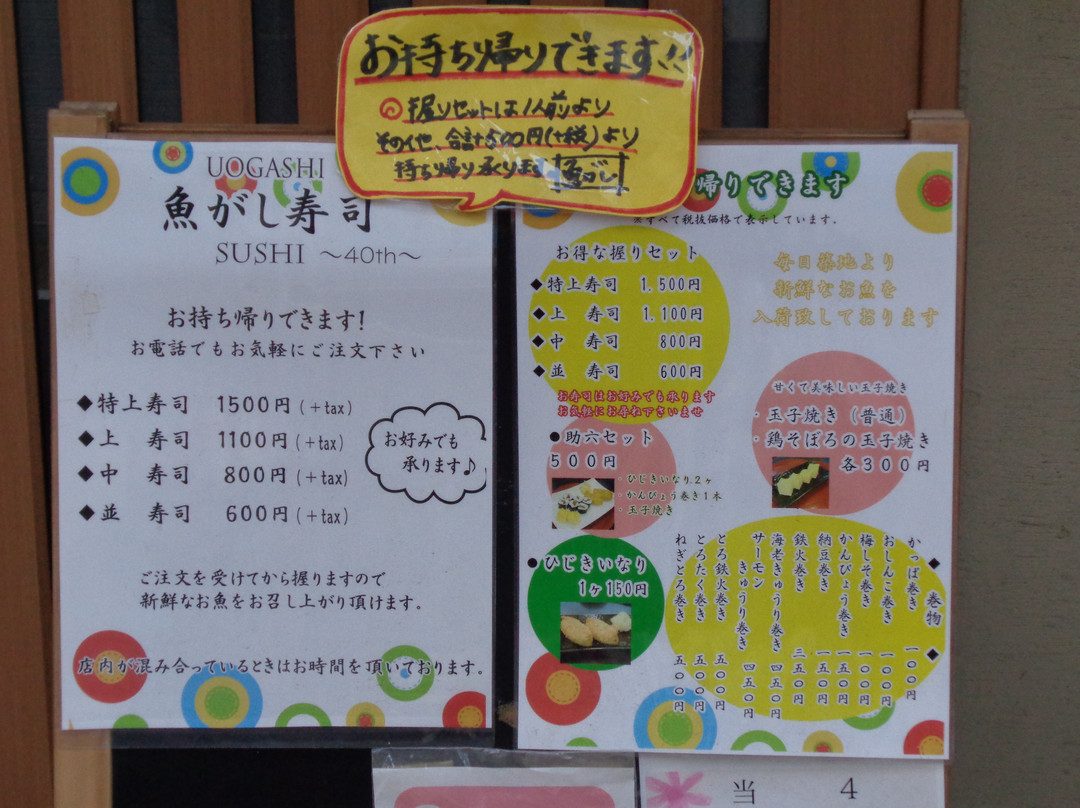 お持ち帰りできます!!
握りセットは1人前より
その他、合計500円(+税)より
持ち帰り承ります 魚がし
UOGASHI
魚がし寿司
SUSHI ～40th～
お持ち帰りできます!
お電話でもお気軽にご注文下さい
◆特上寿司 1500円(+tax)
◆上 寿司 1100円(+tax)
◆中 寿司 800円(+tax)
◆並 寿司 600円(+tax)
お好みでも
承ります♪
ご注文を受けてから握りますので
新鮮なお魚をお召し上がり頂けます。
店内が混み合っているときはお時間を頂いております。
帰りできます
※すべて税抜価格で表示しています。
お得な握りセット
◆特上寿司 1,500円
◆上 寿司 1,100円
◆中 寿司 800円
◆並 寿司 600円
お寿司はお好みでも承ります
お気軽にお尋ね下さいませ
毎日築地より
新鮮なお魚を
入荷致しております
●助六セット
500円
・ひじきいなり2ヶ
・かんぴょう巻き1本
・玉子焼き
甘くて美味しい玉子焼き
・玉子焼き（普通）
・鶏そぼろの玉子焼き
各300円
●ひじきいなり
1ヶ150円
◆巻物◆
かっぱ巻き 一〇〇円
おしんこ巻き 一〇〇円
梅しそ巻き 一〇〇円
かんぴょう巻き 一五〇円
納豆巻き 一五〇円
鉄火巻き 三五〇円
海老きゅうり巻き 四五〇円
サーモン
きゅうり巻き 四五〇円
とろ鉄火巻き 五〇〇円
とろたく巻き 五〇〇円
ねぎとろ巻き 五〇〇円
当 4